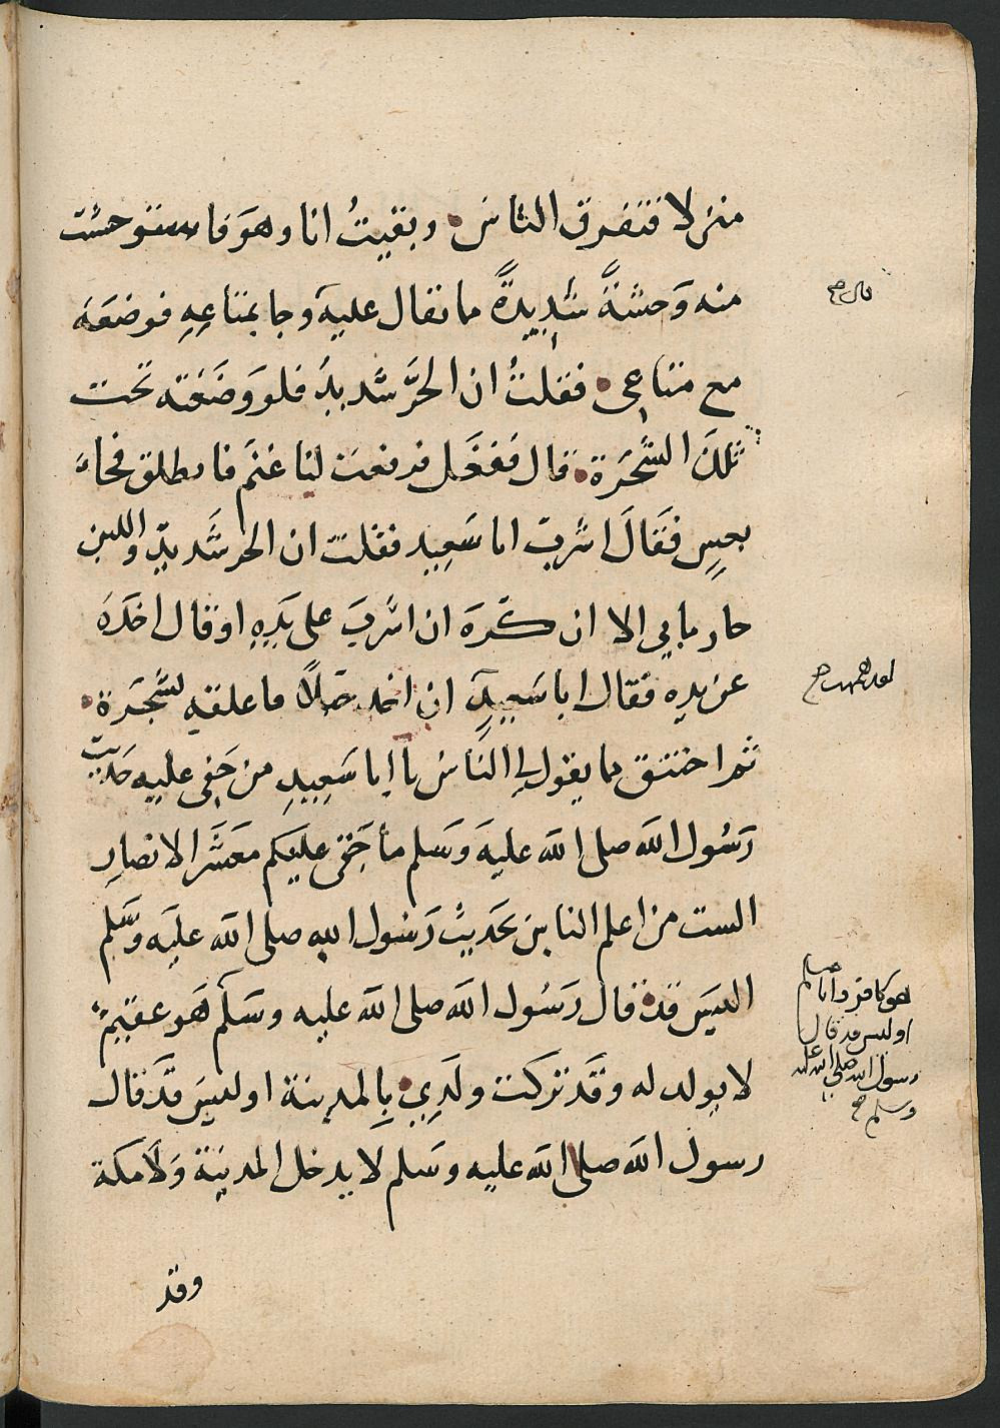 منزلا فتفرق الناس وبقيتُ انا وهوَ فاستوحشت
منه وَحشةً شدِيدةً مما تقال عليه وجا بمتاعِهِ فوضعَهُ
قال صح
مع متاعى فقلتُ ان الحرَّ شديدُ فلو وَضَعته تحت
تلك الشجَرة قال فَفعَل فرفعت لنا غنم فانطلق فجاء
بعسٍ فقَالَ اشرب ابا سَعِيد فقلت ان الحر شَديد واللبن
حار ما بي الا ان كْرَه ان اشربَ على يَدِهِ او قال اخذَه
عن يده فقال ابا سَعِيدٍ ان اخذ حَبلاً فاعلقه لشجَرة
ثم اختنق مما يقول لي الناس يا ابا سَعِيدِ من خَفى عليه حديث
رَسُول الله صلى الله عليه وَسَلم ما خَفى عليكم معشَر الانصارِ
الست من اعلم الناس بحديث رَسُول الله صلى الله عليه وسَلم
اليسَ قد قال رَسُول الله صلى الله عليه وسَلم هَو عقيمٌ
هو كافر وانا مسلم
او ليس قد قال
رسول الله صلى الله عليه
وسلم صح
لا يولد له وقَد تركت ولَدِي بِالمدينة او ليسَ قَد قال
رسول الله صلى الله عليه وسَلم لا يدخل المدينة وَلا مكة
وقد